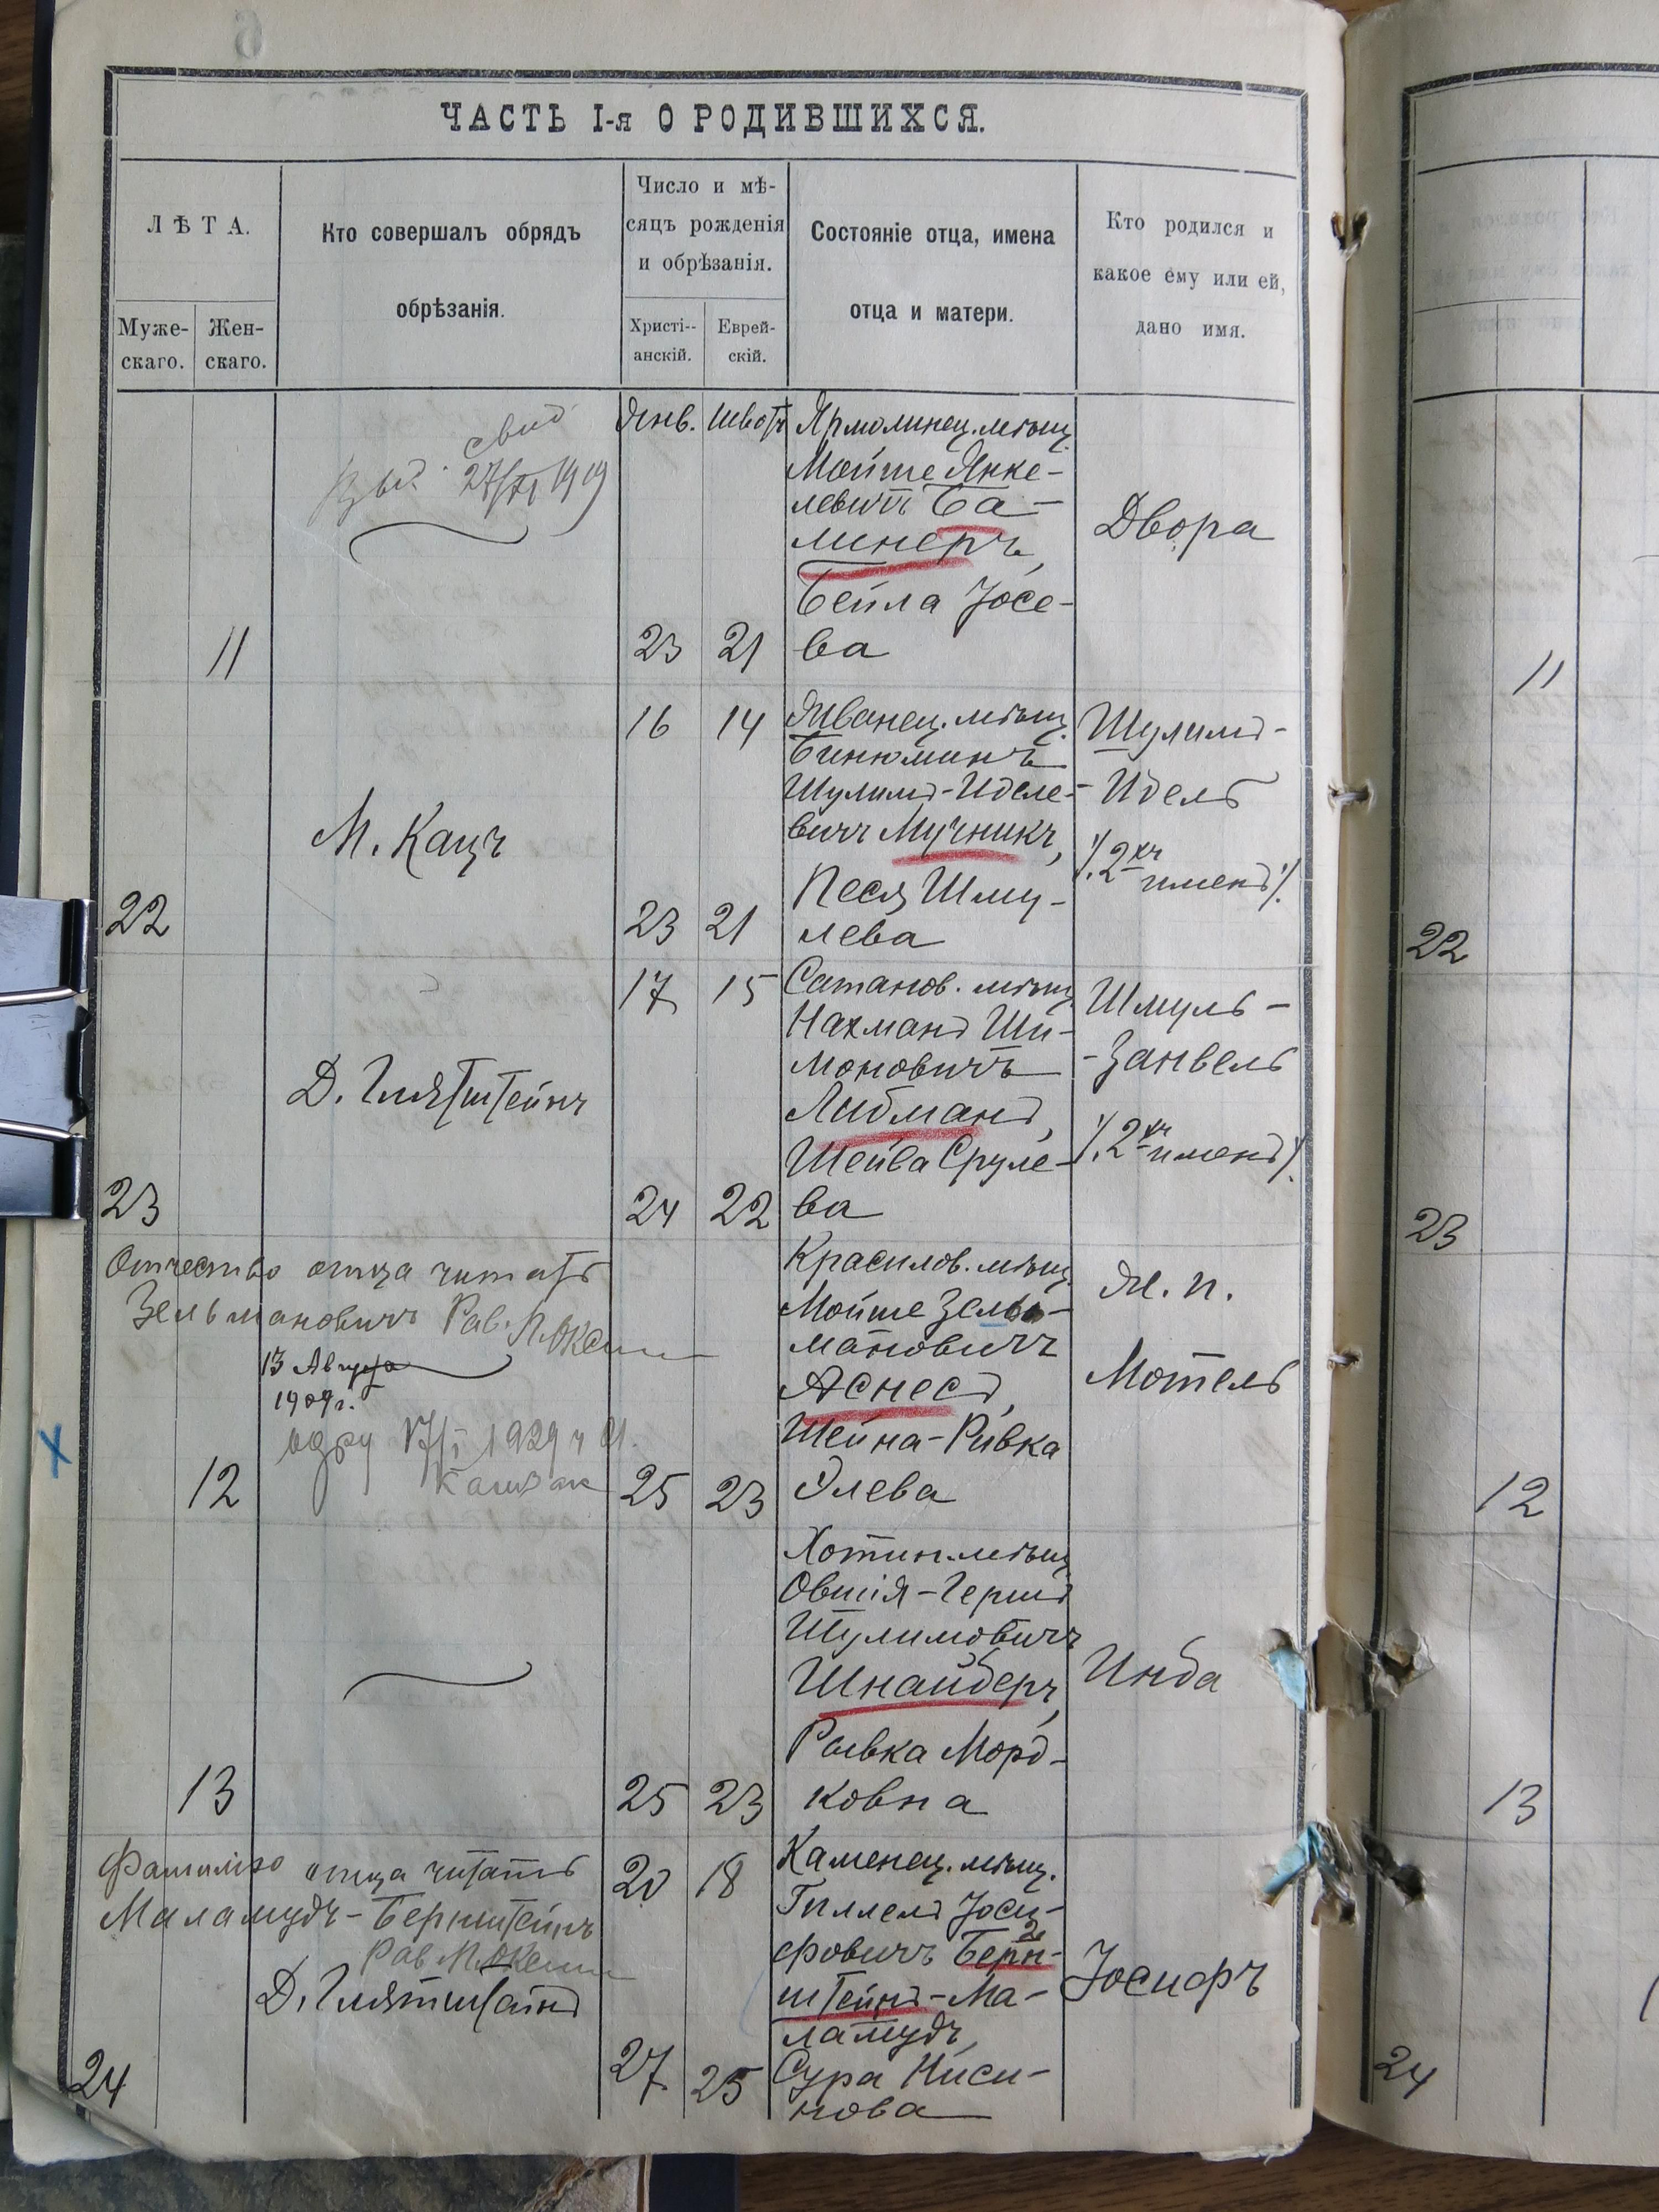 ЧАСТЬ I-я О РОДИВШИХСЯ.
ЛѢТА.
Муже-
скаго.
Жен-
скаго.
Кто совершалъ обрядъ
обрѣзанія.
Число и мѣ-
сяцъ рожденія
и обрѣзанія.
Христі--
анскій.
Еврей-
скій.
Состояніе отца, имена
отца и матери.
Кто родился и
какое ему или ей,
дано имя.
11
выд. свид
27/VI 1919
Янв. Шватъ
23 21
Ярмолинец. мѣщ.
Мойше Янке-
левичъ Ба-
линеръ,
Бейла Іосе-
ва
Двора
22
М. Кацъ
16 14
23 21
Жванец. мѣщ.
Бинюминъ
Шулимъ-Иделе-
вичъ Мучникъ,
Песя Шму-
лева
Шулимъ-
Идель
/.2хъ
именъ/.
23
Д. Глятштейнъ
17 15
24 22
Сатанов. мѣщ.
Нахманъ Ши-
моновичъ
Либманъ,
Шейва Сруле-
ва
Шмуль-
-Занвель
/.2хъ именъ/.
Отчество отца читать
Зельмановичъ Рав.
13 Августа
1909г.
17/I 1929 г
12
25 23
Красилов. мѣщ.
Мойше Зель-
мановичъ
Аснесъ,
Шейна-Ривка
Элева
М. п.
Мотель
13
25 23
Хотин. мѣщ
Овшія-Гершъ
Шулимовичъ
Шнайдеръ,
Рывка Морд-
ковна
Инда
Фамилію отца читать
Маламудъ-Бернштейнъ
Рав.
Д. Глятштайнъ
24
20 18
27 25
Каменец. мѣщ.
Гиллелъ Іоси-
фовичъ Берн-
штейнъ-Ма-
ламудъ,
Сура Ниси-
нова
Іосифъ
11
22
23
12
13
24